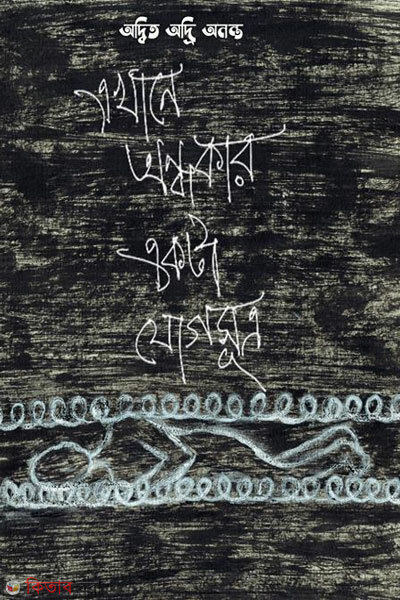 অদ্বিত অদ্রি অনন্ত
এখানে
অন্ধকার
একটা
যোগসূত্র
কিতাব